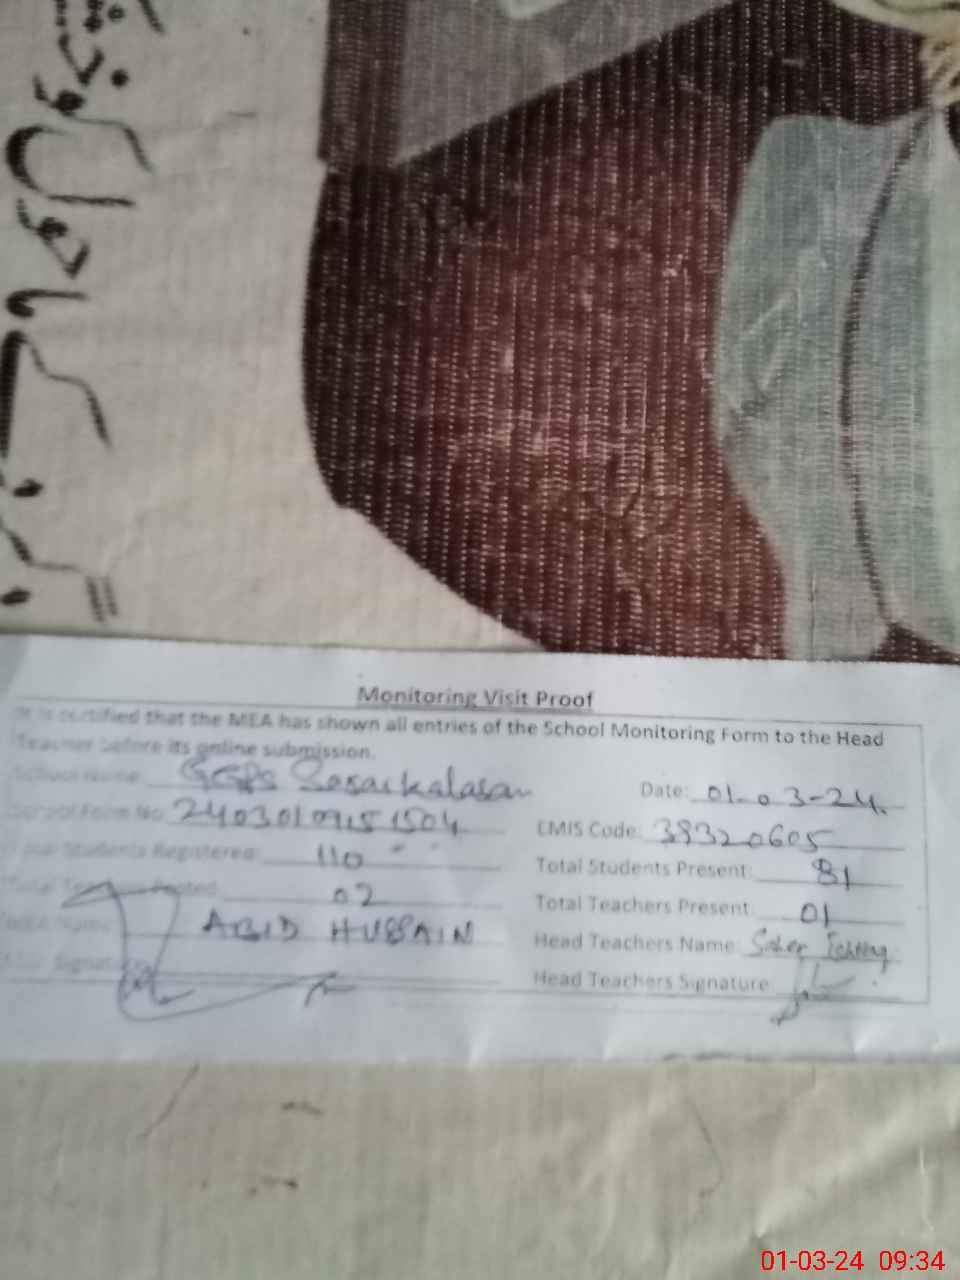 Monitoring Visit Proof
It is certified that the MEA has shown all entries of the School Monitoring Form to the Head
Teacher before its online submission.
School Name GGPS
Date: 01-03-24.
School Form No 24030109151504
EMIS Code: 38320605
Total Students Registered: 110
Total Students Present: 81
Total Teachers Posted: 02
Total Teachers Present: 01
MEA Name ABID HUSSAIN
Head Teachers Name: Saher
MEA Signature
Head Teachers Signature
01-03-24 09:34